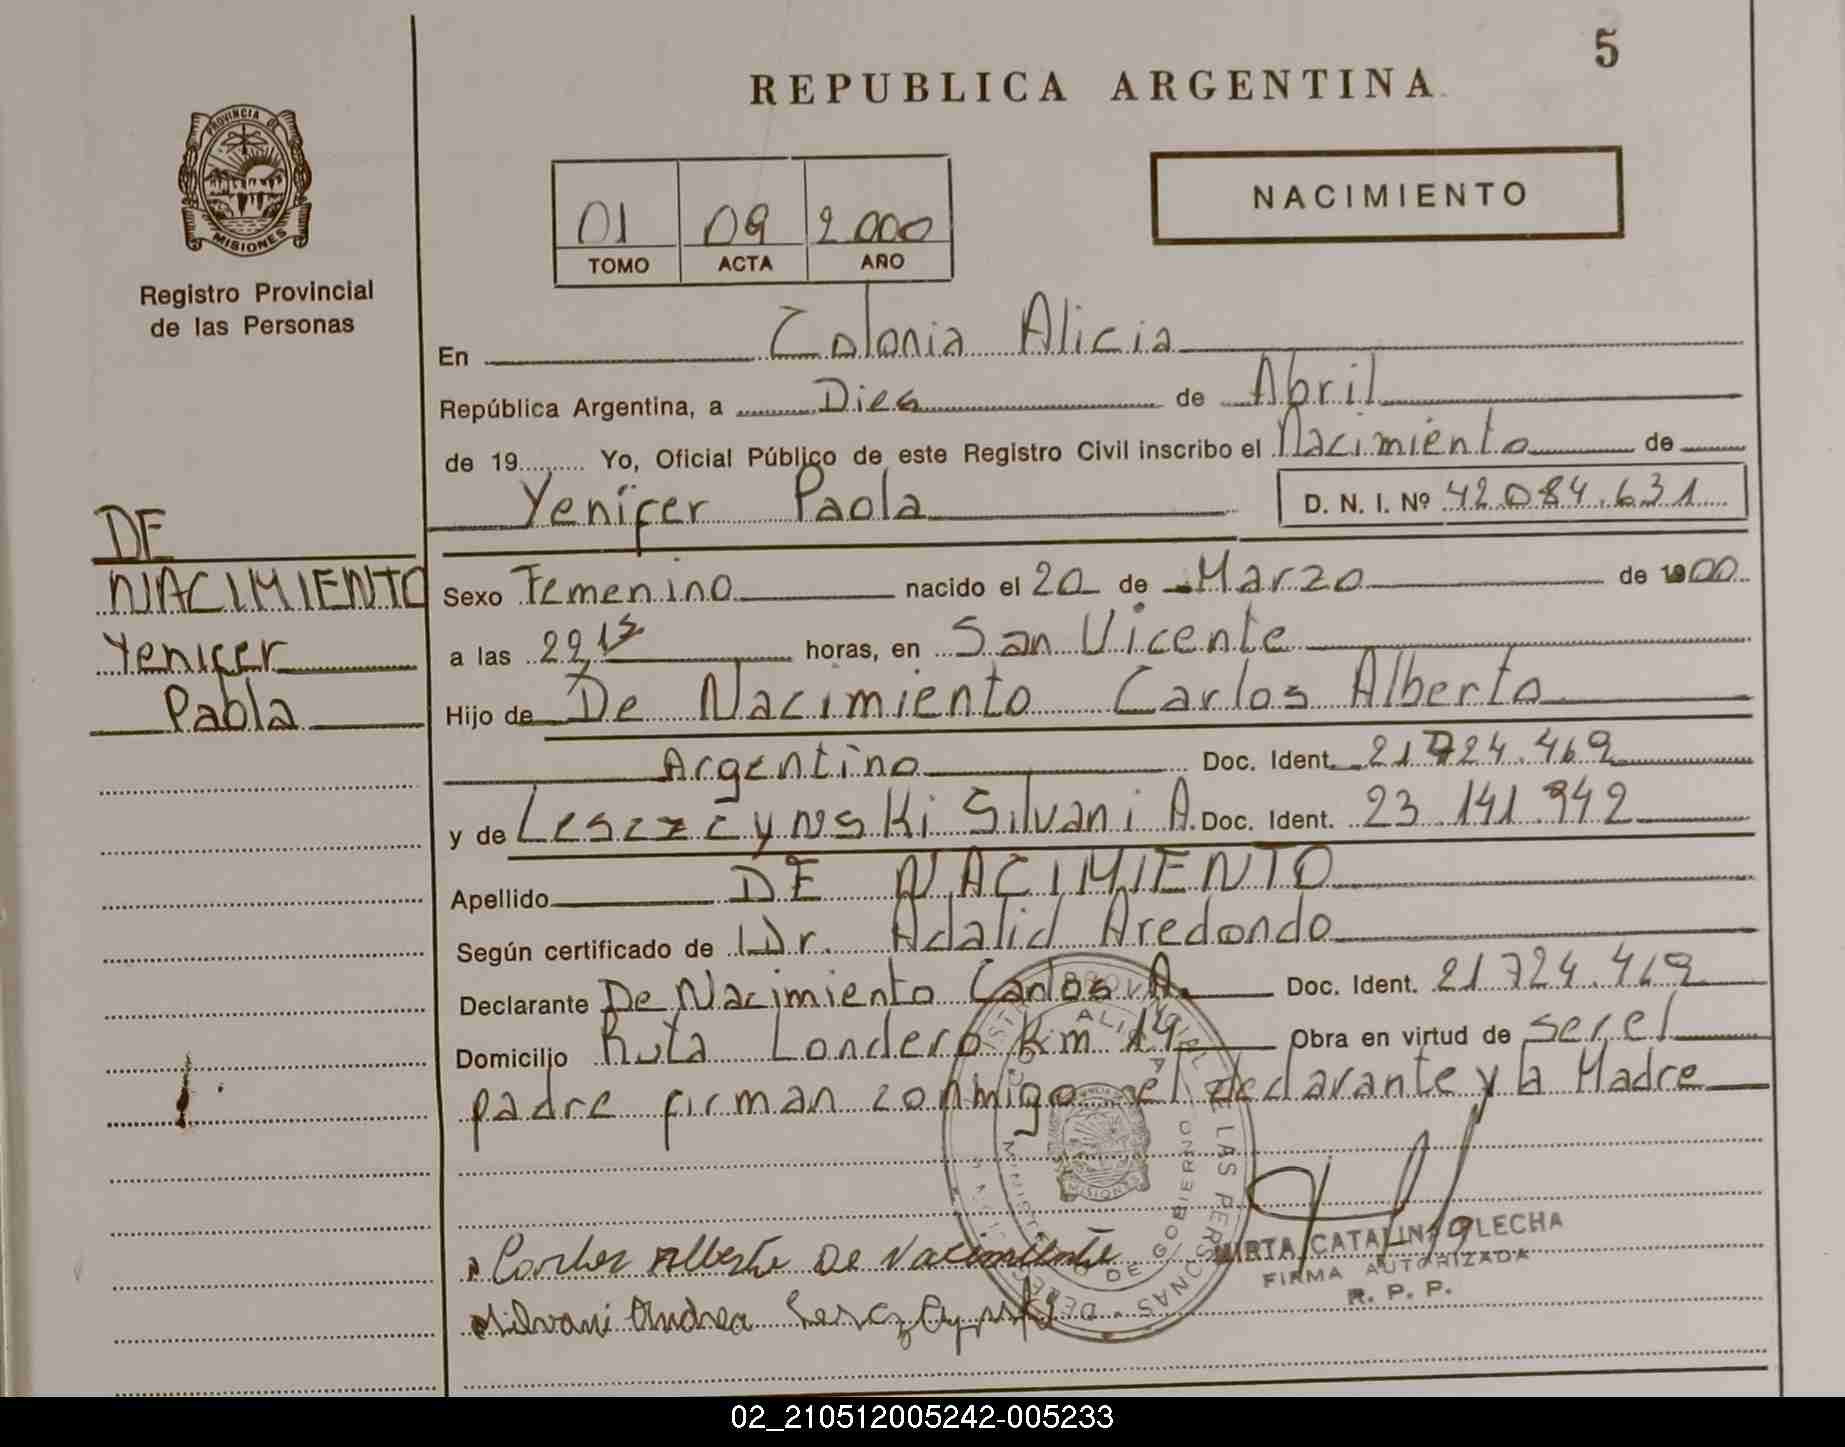 5
REPUBLICA ARGENTINA
NACIMIENTO
01 09 2.000
TOMO ACTA AÑO
PROVINCIA DE
MISIONES
Registro Provincial
de las Personas
En Colonia Alicia
República Argentina, a Dies de Abril
de 19 Yo, Oficial Público de este Registro Civil inscribo el Nacimiento de
Yenifer Paola D. N. I. Nº 42.084.631
DE
NACIMIENTO
Yenifer
Paola
Sexo Femenino nacido el 20 de Marzo de 1900
a las 22,15 horas, en San Vicente
Hijo de De Nacimiento Carlos Alberto
Argentino Doc. Ident. 21 724.469
y de Leszczynski Silvani A. Doc. Ident. 23.141.942
Apellido DE NACIMIENTO
Según certificado de Dr. Adalid Aredondo
Declarante De Nacimiento Carlos A. Doc. Ident. 21 724.469
Domicilio Ruta Londero Km 14 Obra en virtud de ser el
padre firman conmigo el declarante y la Madre
Carlos Alberto De Nacimiento
Silvani Andrea Leszczynski
MIRTA CATALINA OLECHA
FIRMA AUTORIZADA
R. P. P.
DE LAS PERSONAS
DE GOBIERNO
MISIONES
02_210512005242-005233